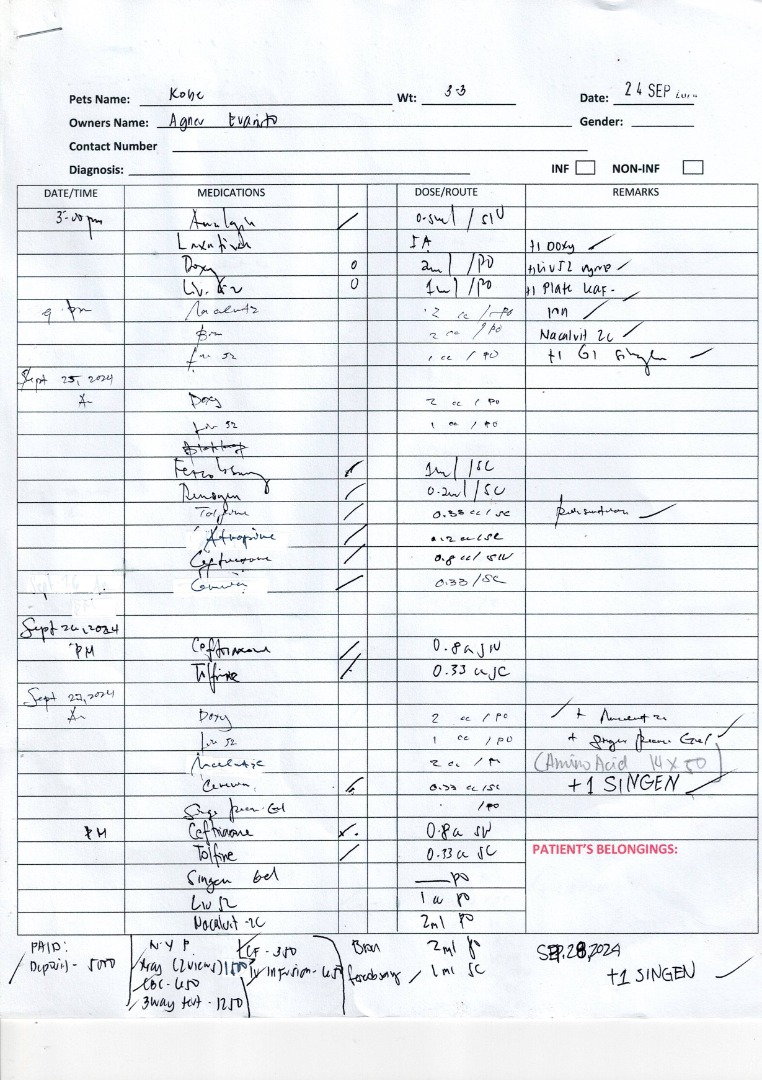 Pets Name: Kobe Wt: 3.3 Date: 24 SEP
Owners Name: Agner Evaristo Gender:
Contact Number
Diagnosis: INF NON-INF
DATE/TIME MEDICATIONS DOSE/ROUTE REMARKS
3:00 pm Analgin 0.5ml / SIV
Laxative IA +1 Doxy
Doxy 0 2ml / PO +1 Liv 52
Liv. 52 0 1ml / PO +1 Plate
9 pm 2 cc / PO
2 cc / PO Nacalvit 2c
Liv 52 1 cc / PO +1 GI Singen
Sept 25, 2024
Doxy 2 cc / PO
Liv 52 1 cc / PO
Ferobsung 1ml / SC
0.2ml / SC
Tolfine 0.33 cc / SC
Atropine 0.2 cc/SC
Ceftriaxone 0.8 cc/ SIV
Cerenia 0.33 /SC
Sept 26, 2024
PM Ceftriaxone 0.8 a SIV
Tolfine 0.33 a SC
Sept 27, 2024
Doxy 2 cc / PO
Liv 52 1 cc / PO + Singen Gel
2 cc / PO (Amino Acid 14 x 50)
Cerenia 0.33 cc/SC +1 SINGEN
Gel / PO
PM Ceftriaxone 0.8 a SIV
Tolfine 0.33 a SC PATIENT'S BELONGINGS:
Singen Gel PO
Liv 52 1 a PO
Nacalvit -2C 2ml PO
PAID: N Y P LCF - 350 2ml PO SEP.28,2024
Deposit - 5000 Xray (2 views) 1500 IV Infusion - 650 ferobsung 1 ml SC +1 SINGEN
CBC - 650
3way test - 1250